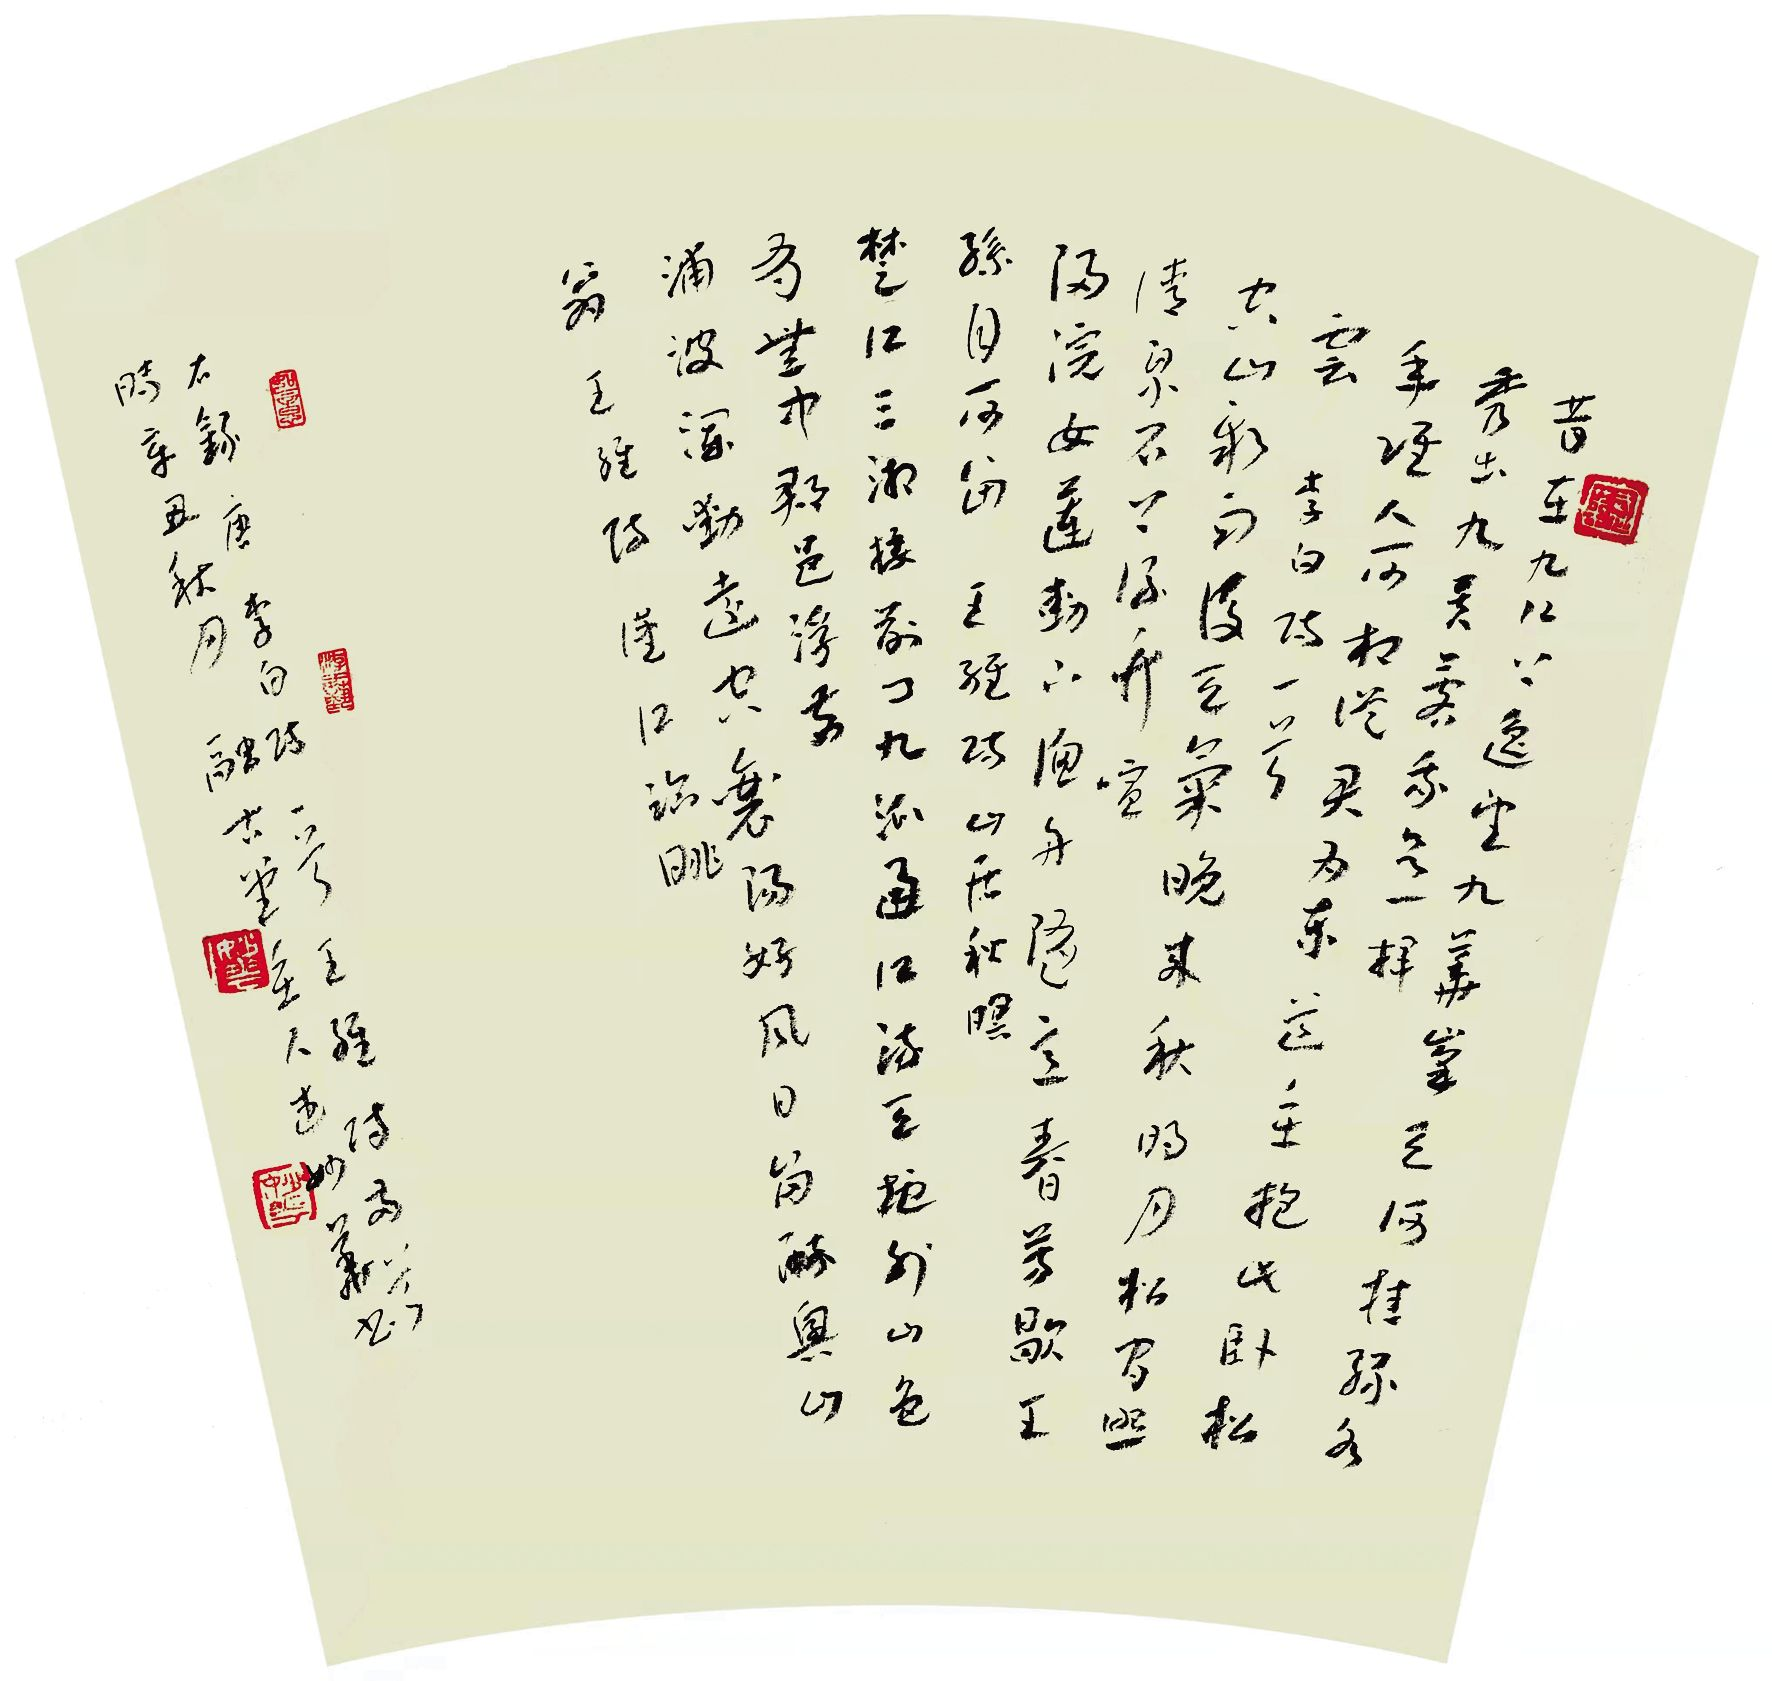 昔在九江上遙望九華峯天河挂綠水
秀出九芙蓉我欲一揮
手誰人可相從君為東道主於此臥松
雲 李白詩一首
空山新雨後天氣晚來秋明月松間照
清泉石上流竹喧
歸浣女蓮動下漁舟隨意春芳歇王
孫自可留 王維詩山居秋暝
楚江三湘接荊門九派通江流天地外山色
有無中郡邑浮前
浦波瀾動遠空襄陽好風日留醉與山
翁 王維詩 漢江臨眺
右錄唐李白詩一首王維詩兩首
時辛丑秋月融古堂主人妙華